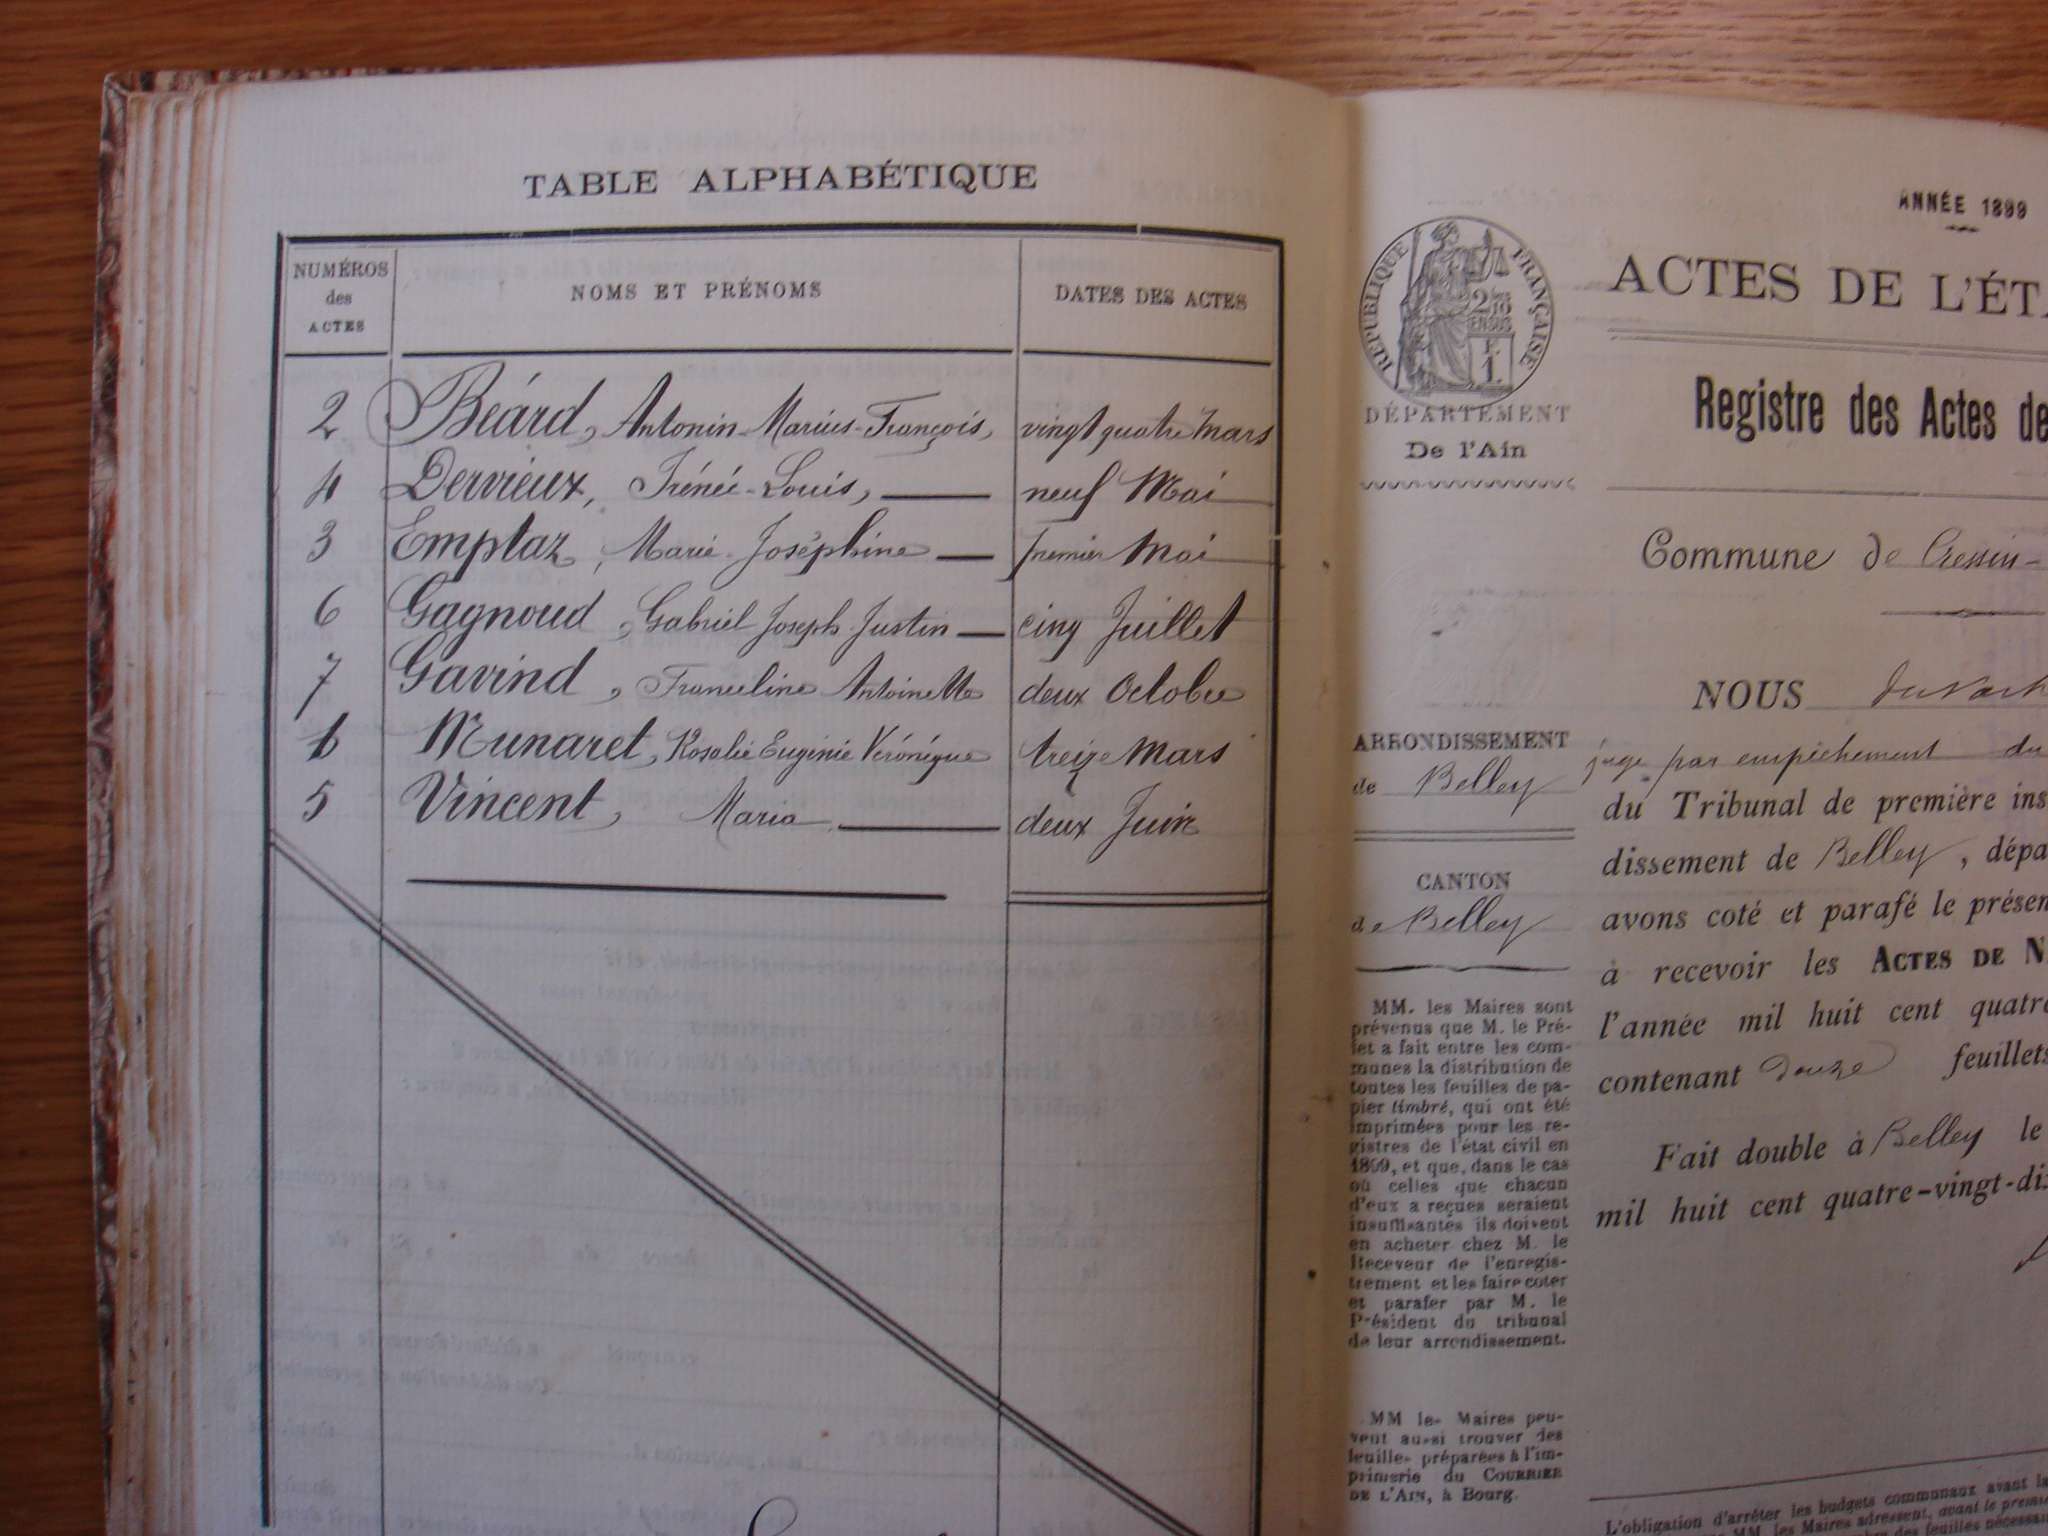 TABLE ALPHABÉTIQUE
NUMÉROS des ACTES NOMS ET PRÉNOMS DATES DES ACTES
2 Béard, Antonin-Marius-François, vingt quatre Mars
4 Dervieux, Irénée-Louis, neuf Mai
3 Emptaz, Marie-Joséphine premier Mai
6 Gagnoud, Gabriel Joseph Justin cinq Juillet
7 Gavind, Franceline Antoinette deux Octobre
1 Munaret, Rosalie Eugénie Véronique treize Mars
5 Vincent, Maria deux Juin
ANNÉE 1899
ACTES DE L'ÉT
RÉPUBLIQUE FRANÇAISE
DÉPARTEMENT
De l'Ain
Registre des Actes de
Commune de Cressin-
NOUS
ARRONDISSEMENT
de Belley
juge par empêchement du
du Tribunal de première ins
dissement de Belley, dépa
CANTON
de Belley
avons coté et parafé le présen
à recevoir les ACTES DE N
l'année mil huit cent quatre
contenant douze feuillets
Fait double à Belley le
mil huit cent quatre-vingt-di
MM. les Maires sont
prévenus que M. le Pré-
fet a fait entre les com-
munes la distribution de
toutes les feuilles de pa-
pier timbré, qui ont été
imprimées pour les re-
gistres de l'état civil en
1899, et que, dans le cas
où celles que chacun
d'eux a reçues seraient
insuffisantes ils doivent
en acheter chez M. le
Receveur de l'enregis-
trement et les faire coter
et parafer par M. le
Président du tribunal
de leur arrondissement.
MM les Maires peu-
vent aussi trouver des
feuilles préparées à l'im-
primerie du COURRIER
DE L'AIN, à Bourg.
L'obligation d'arrêter les budgets communaux avant la
MM. les Maires adressent, avant le premie
des feuilles nécessair